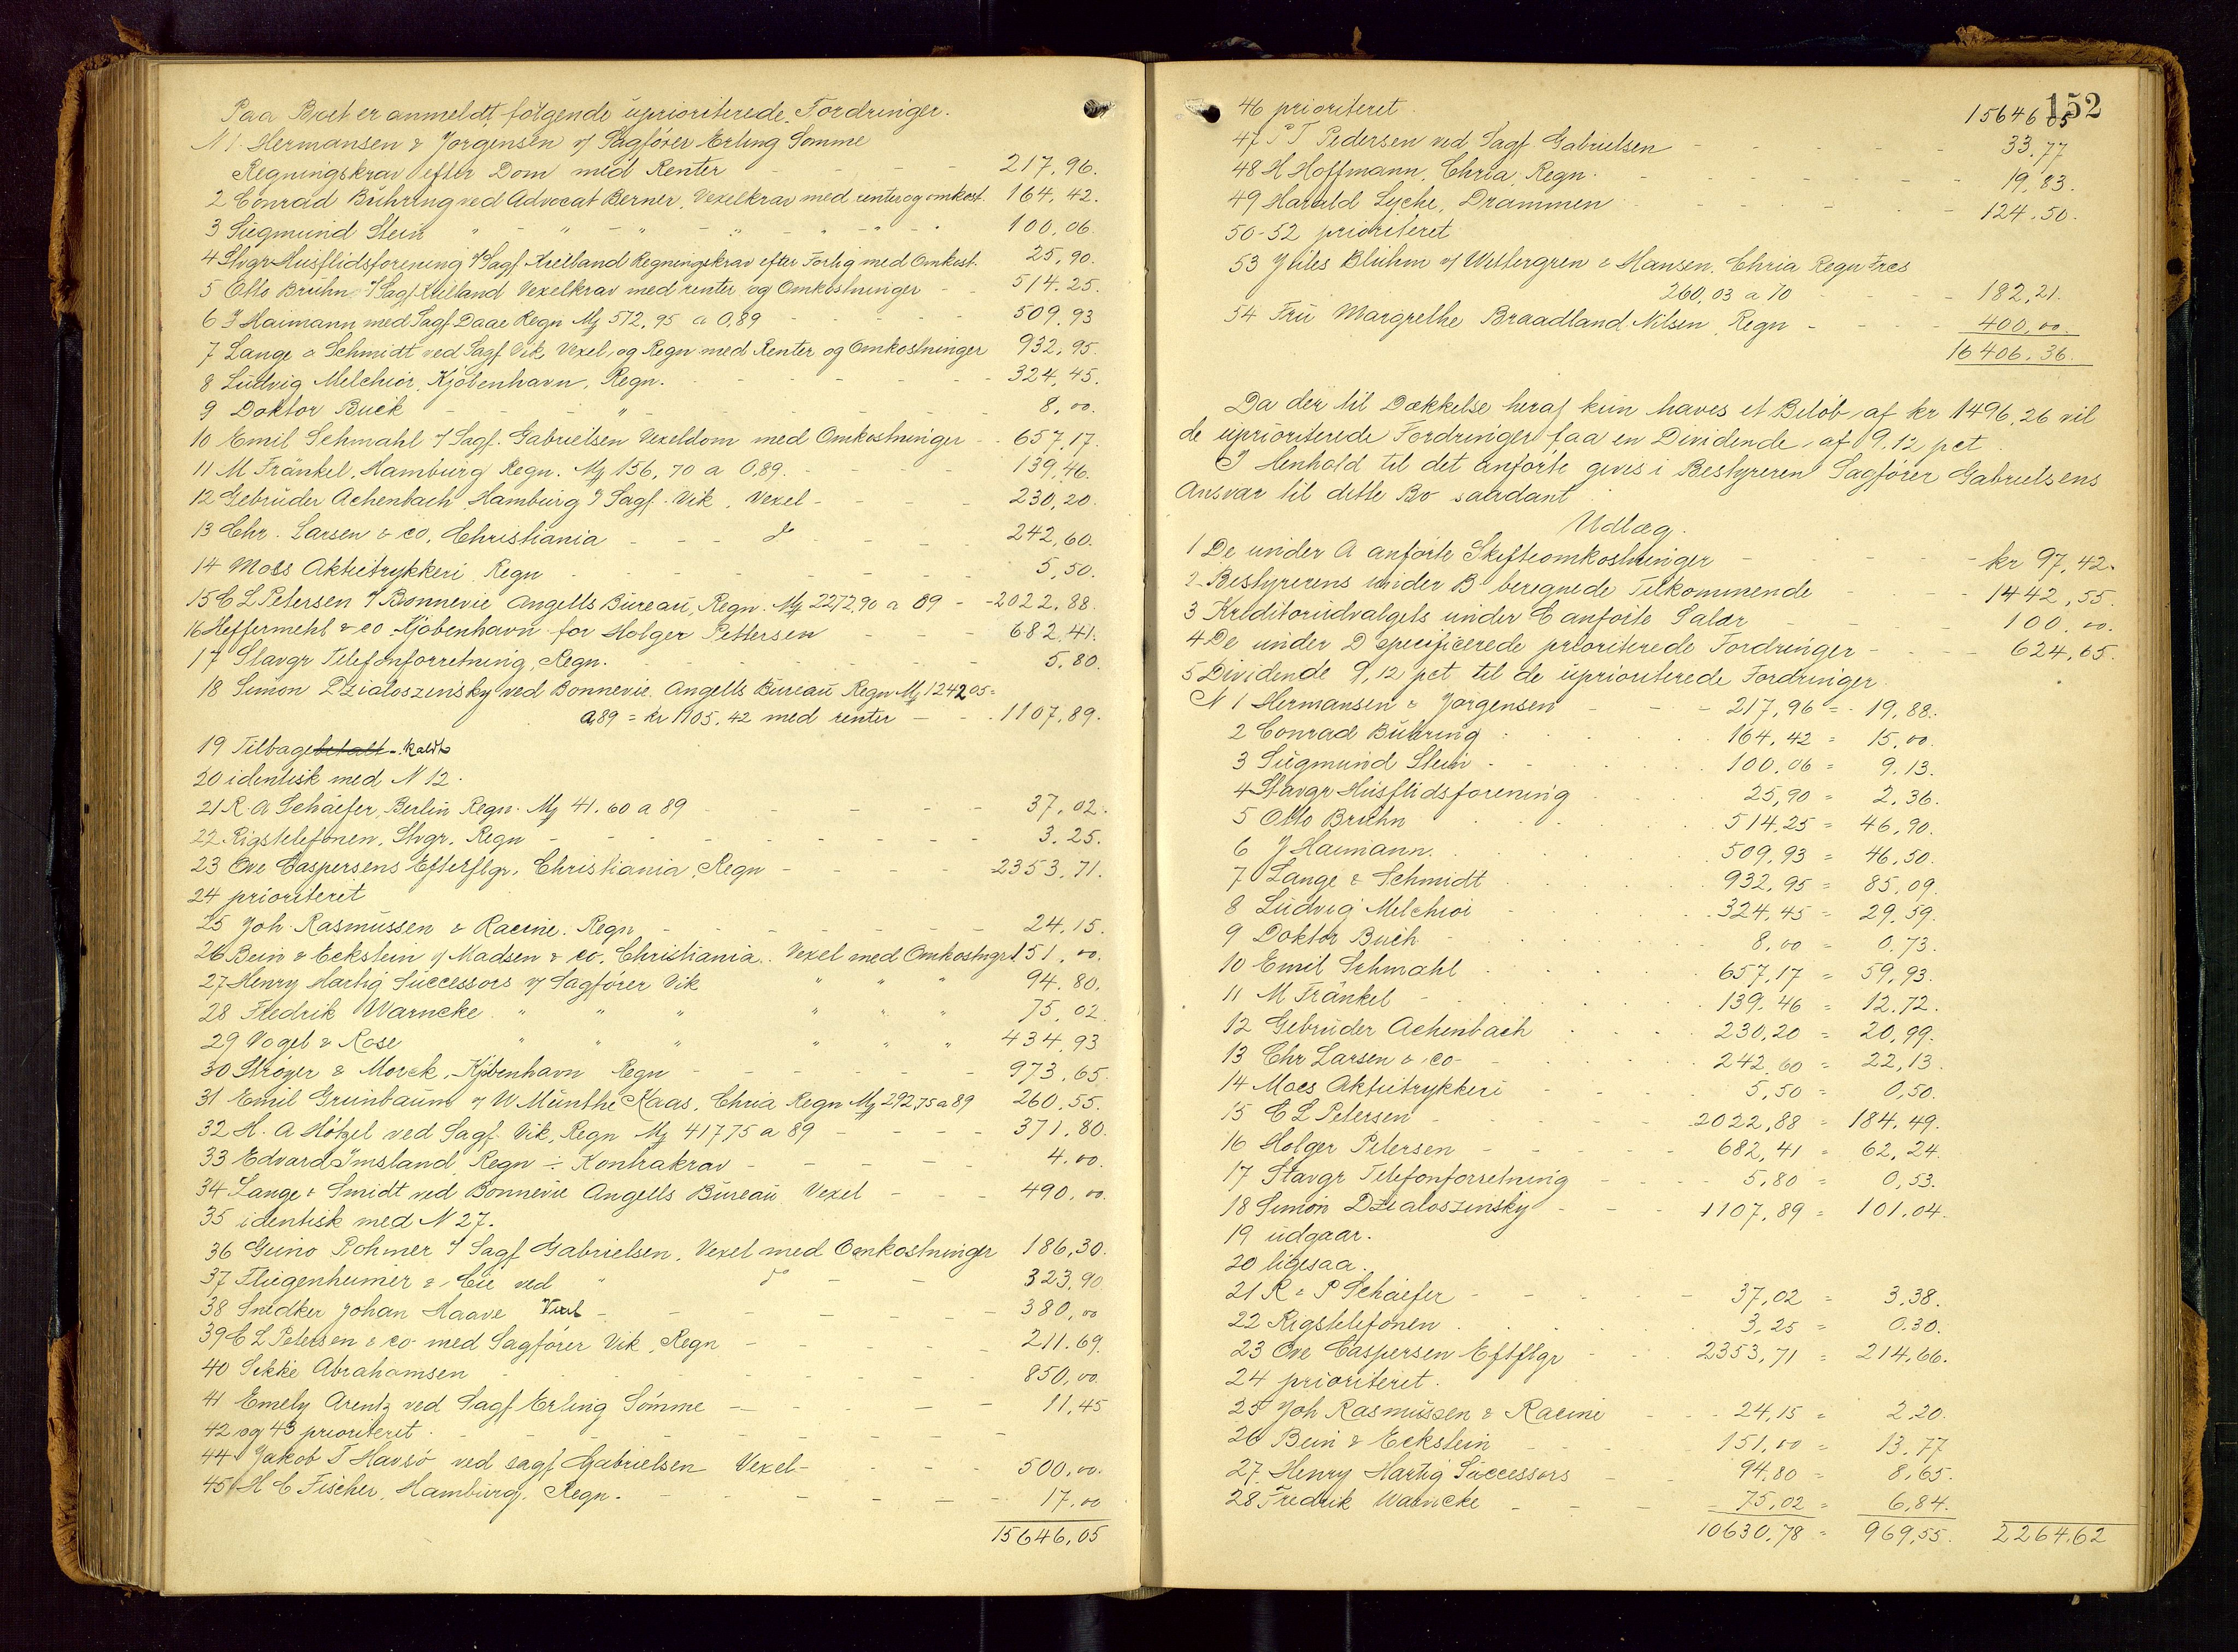 Paa Boet er anmeldt følgende uprioriterede Fordringer.
N 1 Hermansen & Jorgensen v/ Sagfører Erling Somme
Regningskrav efter Dom med Renter - - - 217,96.
2 Conrad Bühring ved Advocat Berner, Vexelkrav med renter og omkost. 164,42.
3 Siegmund Stein " - " - " - " - " - " - 100,06.
4 Stvgr Husflidsforening v/ Sagf. Kielland Regningskrav efter Forlig med Omkost. 25,90.
5 Otto Bruhn v/ Sagf Kielland Vexelkrav med renter og Omkostninger - - 514.25.
6 J Haimann med Sagf. Daae Regn Mk 572,95 a 0,89 - - - - 509,93
7 Lange & Schmidt ved Sagf Vik, Vexel, og Regn med Renter og Omkostninger 932,95.
8 Ludvig Melchior, Kjøbenhavn, Regn. - - - - 324,45.
9 Doktor Buck - - - " - - - - 8,00.
10 Emil Schmahl v/ Sagf. Gabrielsen Vexeldom med Omkostninger - - 657,17.
11 M Fränkel, Hamburg Regn. Mk 156,70 a 0,89. - - - - 139,46.
12 Gebrüder Achenbach, Hamburg v/ Sagf. Vik, Vexel - - - 230,20.
13 Chr. Larsen & co, Christiania - - - do - - - 242,60.
14 Moss Aktietrykkeri, Regn - - - - - 5,50.
15 C L Petersen v/ Bonnevie Angells Bureau, Regn. Mk 2272,90 a 89 - - 2022,88.
16 Heffermehl & co Kjøbenhavn for Holger Pettersen - - - 682,41.
17 Stavgr Telefonforretning, Regn. - - - - - 5.80.
18 Simon Dzialoszinsky ved Bonnevie Angells Bureau Regn Mk 124205 =
a,89 = kr 1105,42 med renter - - - 1107,89.
19 Tilbagebetalt - kaldt
20 identisk med N 12.
21 R. A Schäefer, Berlin Regn. Mk 41.60 a 89 - - - - 37,02.
22 Rigstelefonen, Stvgr. Regn - - - - - 3.25.
23 Ove Caspersens Efterflgr. Christiania, Regn - - - - 2353,71.
24 prioriteret
25 Joh. Rasmussen & Racine. Regn - - - - - 24,15.
26 Bein & Eckstein v/ Madsen & co, Christiania.. Vexel med Omkostngr 151,00.
27 Henry Hartig Successors v/ Sagfører Vik " " " 94.80.
28 Fredrik Warncke " " " " " " 75,02.
29 Vogel & Rose " " " " " " 434,93
30 Strøyer & Morck, Kjøbenhavn Regn - - - - 973,65.
31 Emil Grünbaum v/ W Münthe Kaas, Chria Regn Mk 292,75 a 89 260,55.
32 H. A Hötzel ved Sagf. Vik, Regn Mk 417 75 a 89 - - - 371,80.
33 Edvard Imsland Regn ÷ Kontrakrav - - - - 4.00.
34 Lange & Smidt ved Bonnevie Angells Bureau Vexel - - - 490,00.
35 identisk med N 27.
36 Guino Rohmer v/ Sagf Gabrielsen, Vexel med Omkostninger 186,30.
37 Fliegenheimer & Cie ved " do - - 323,90
38 Snedker Johan Haave Vexel - - - - - 380,00
39 C L Petersen & co med Sagfører Vik, Regn - - - - 211.69.
40 Sikke Abrahamsen - - - - - 850,00.
41 Emely Arentz ved Sagf Erling Sömme - - - - 11,45
42 og 43 prioriteret. - - - - -
44 Jakob T Havsö ved sagf Gabrielsen Vexel - - - - 500,00.
45 H C Fischer, Hamburg, Regn. - - - - - 17,00
15646,05
152
46 prioriteret. 15646 05
47 P T Pedersen ved Sagf. Gabrielsen - - - - 33.77
48 H Hoffmann, Chria, Regn. - - - - - 19,83.
49 Harald Lyche, Drammen - - - - - 124,50.
50-52 prioriteret
53 Jules Blühm v/ Westergren & Hansen, Chria Regn Frcs
260,03 a 70 - - - - 182,21.
54 Fru Margrethe Braadland Nilsen, Regn - - - 400,00.
16406,36.
Da der til Dækkelse heraf kun haves et Beløb af kr 1496,26 vil
de uprioriterede Fordringer faa en Dividende af 9,12 pct.
I Henhold til det anførte gives i Bestyreren Sagfører Gabrielsens
Ansvar til dette Bo saadant
Udlæg.
1 De under A anførte Skifteomkostninger - - - kr 97,42.
2 Bestyrerens under B beregnede Tilkommende - - - 1442,55.
3 Kreditorudvalgets under C anførte Salær - - - - 100,00.
4 De under D specificerede prioriterede Fordringer - - - 624,65.
5 Dividende 9,12 pct til de uprioriterede Fordringer.
N 1 Hermansen & Jørgensen - - - 217,96 = 19,88.
2 Conrad Bühring - - - 164,42 = 15,00.
3 Siegmund Stein - - - 100,06 = 9.13.
4 Stavgr Husflidsforening - - - 25,90 = 2,36.
5 Otto Bruhn - - - 514,25 = 46,90.
6 J Haimann. - - - 509,93 = 46,50.
7 Lange & Schmidt - - - 932,95 = 85,09.
8 Ludvig Melchior - - - 324,45 = 29.59.
9 Doktor Buch - - - 8,00 = 0.73.
10 Emil Schmahl - - - 657,17 = 59,93.
11 M Fränkel - - - 139,46 = 12.72.
12 Gebrüder Achenbach - - - 230,20 = 20,99.
13 Chr Larsen & co - - - 242,60 = 22,13.
14 Moss Aktietrykkeri - - - 5,50 = 0,50.
15 C L Petersen - - - 2022,88 = 184,49.
16 Holger Petersen - - - 682,41 = 62,24.
17 Stavgr Telefonforretning - - - 5.80 = 0,53.
18 Simon Dzialoszinsky - - - 1107,89 = 101,04.
19 udgaar.
20 ligesaa.
21 R & P Schäefer - - - 37,02 = 3,38.
22 Rigstelefonen - - - 3,25 = 0.30.
23 Ove Caspersen Eftflgr - - - 2353,71 = 214,66.
24 prioriteret.
25 Joh Rasmussen & Racine - - - 24,15 = 2,20.
26 Bein & Eckstein - - - 151,00 = 13,77
27 Henry Hartig Successors - - 94,80 = 8,65.
28 Fredrik Warncke - - - 75,02 = 6,84.
10630,78 = 969,55. 2264,62